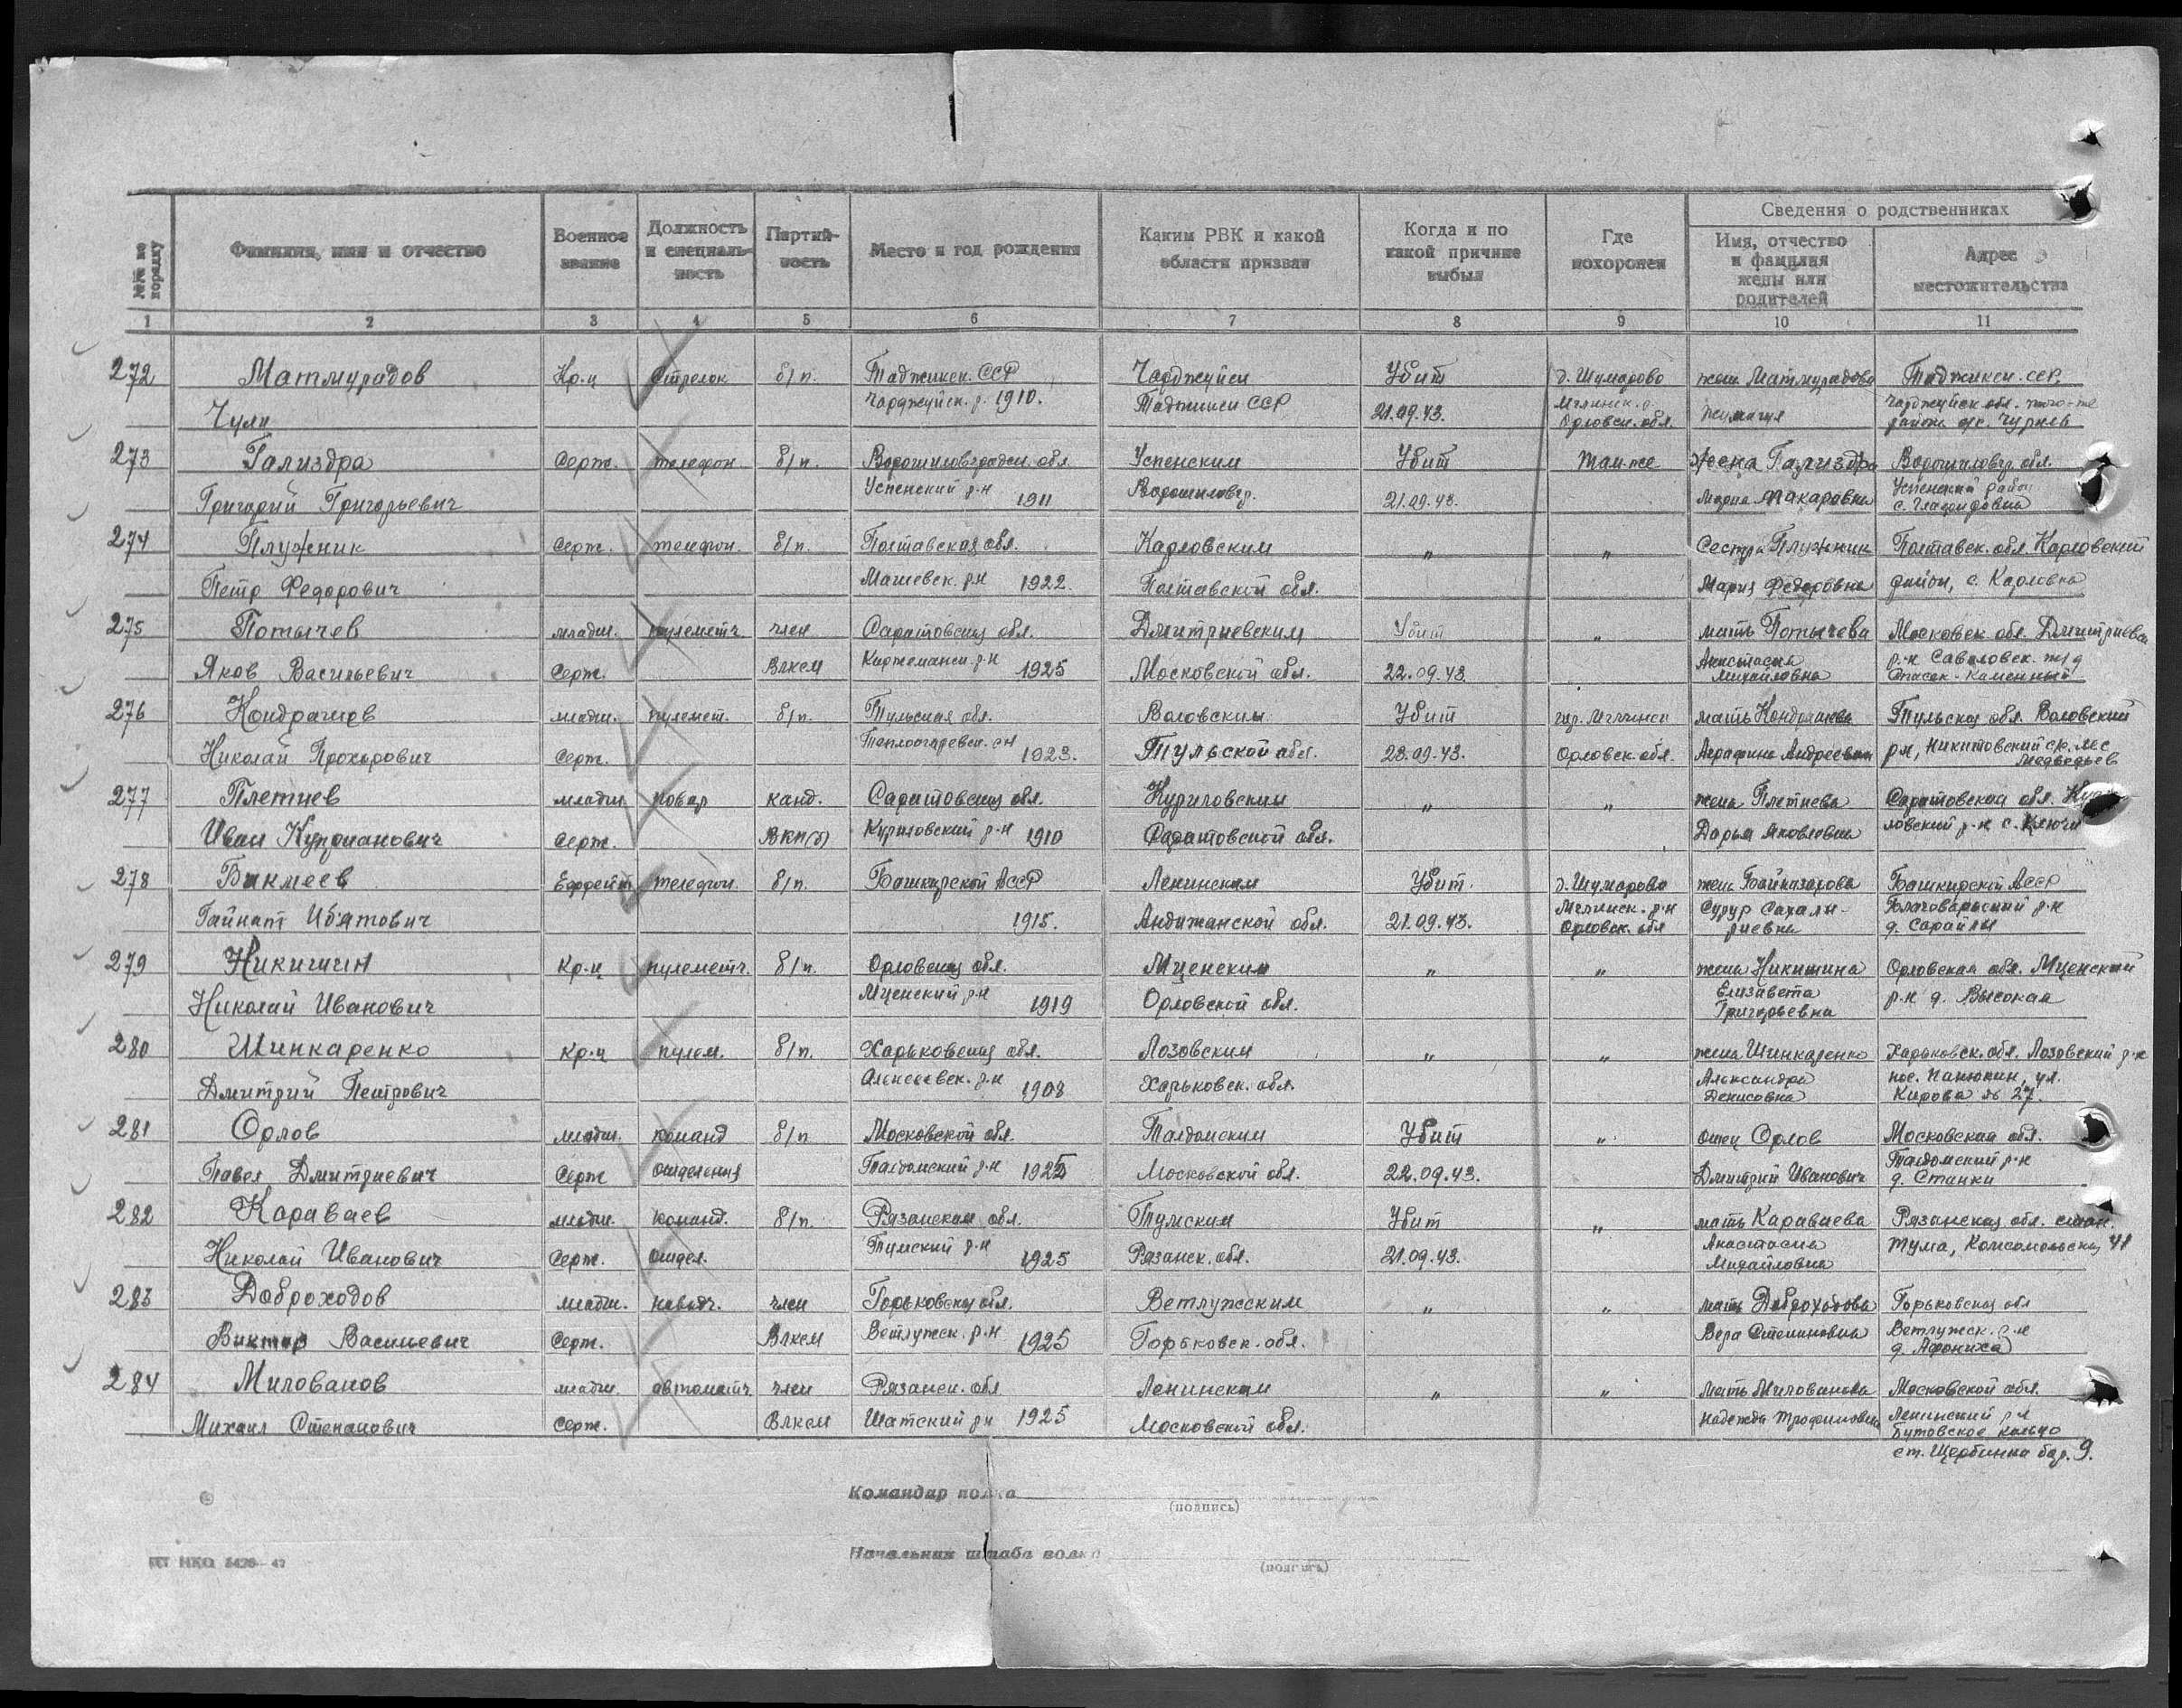 №№ по порядку
Фамилия, имя и отчество
Военное звание
Должность и специальность
Партийность
Место и год рождения
Каким РВК и какой области призван
Когда и по какой причине выбыл
Где похоронен
Сведения о родственниках
Имя, отчество и фамилия жены или родителей
Адрес местожительства
1 2 3 4 5 6 7 8 9 10 11
272 Матмурадов Кр-ц стрелок б/п. Таджикск. ССР Чарджуйск Убит д. Шумарово жена Матмурадова Таджикск. ССР,
Чули Чарджуйск. р. 1910. Таджикск ССР 21.09.43. Мглинск. р. Орловск. обл. Чарджуйск обл. того-же района
273 Гализдра Серж. телефон б/п. Ворошиловградск. обл Успенским Убит там-же жена Гализдра Ворошиловгр. обл.
Григорий Григорьевич Успенский р-н 1911 Ворошиловгр. 21.09.43. Мария Макаровна Успенский район
274 Плужник Серж. телефон. б/п. Полтавская обл. Карловским " " Сестра Плужник Полтавск. обл. Карловский
Петр Федорович Машевск. р-н 1922 Полтавской обл. Мария Федоровна район, с. Карловка
275 Потычев младш. пулеметч. член Саратовская обл. Дмитриевским Убит " мать Потычева Московск. обл. Дмитриевск
Яков Васильевич Серж. Влксм р-н 1925 Московской обл. 22.09.43 Анастасия Михайловна р-н Савеловск. ж/д Спасск-Каменный
276 Кондрашов младш. пулемет. б/п. Тульская обл. Воловским Убит гор. Мглинск мать Кондрашова Тульская обл. Воловский
Николай Прохорович Серж. Теплоогаревск. р-н 1923. Тульской обл. 23.09.43. Орловск. обл. Аграфина Андреевна рн, Никитовский с/с,
277 Плетнев младш. повар канд. Саратовская обл. Куриловским " " жена Плетнева Саратовская обл.
Иван Куприанович Серж. ВКП(б) Куриловский р-н 1910 Саратовской обл. Дарья Яковлевна ловский р-н с. Ключи
278 Бикмеев Ефрейт телефон. б/п. Башкирской АССР Ленинским Убит. д. Шумарово жена Байназарова Башкирской АССР
Гайнат Ибятович 1915. Андижанской обл. 21.09.43. Мглинск. р-н Орловск. обл Благоварский р-н д. Сарайлы
279 Никишин Кр-ц пулеметч. б/п. Орловская обл. Мценским " " жена Никишина Орловская обл. Мценский
Николай Иванович Мценский р-н 1919 Орловской обл. Елизавета Григорьевна р-н д. Высокая
280 Шинкаренко Кр-ц пулем. б/п. Харьковская обл. Лозовским " " жена Шинкаренко Харьковск. обл. Лозовский р-н
Дмитрий Петрович Алексеевск. р-н 1908 Харьковск. обл. Александра Денисовна пос. Панютин, ул. Кирова № 27.
281 Орлов младш. команд б/п Московской обл. Талдомским Убит " отец Орлов Московская обл.
Павел Дмитриевич Серж отделения Талдомский р-н 1925 Московской обл. 22.09.43. Дмитрий Иванович Талдомский р-н д. Станки
282 Караваев младш. команд. б/п. Рязанская обл. Тумским Убит " мать Караваева Рязанская обл. стан.
Николай Иванович Серж. отдел. Тумский р-н 1925 Рязанск. обл. 21.09.43. Анастасия Михайловна Тума, Комсомольская 41
283 Доброходов младш. наводч. член Горьковская обл. Ветлужским " " мать Доброходова Горьковская обл
Виктор Васильевич Серж. Влксм Ветлужск. р-н 1925 Горьковск. обл. Вера Степановна Ветлужск. р-н д. Афониха
284 Милованов младш. автоматч. член Рязанск. обл Ленинским " " Мать Милованова Московской обл.
Михаил Степанович Серж. Влксм Шатский рн 1925 Московской обл. Надежда Трофимовна Ленинский р-н Бутовское кольцо
ст. Щербинка бар. 9.
Командир полка
(подпись)
Начальник штаба полка
(подпись)